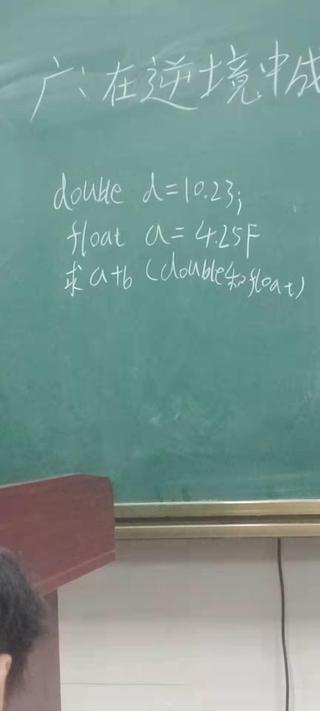 广：在逆境中成
double d=10.23;
float a=4.25F
求a+b (double和float)